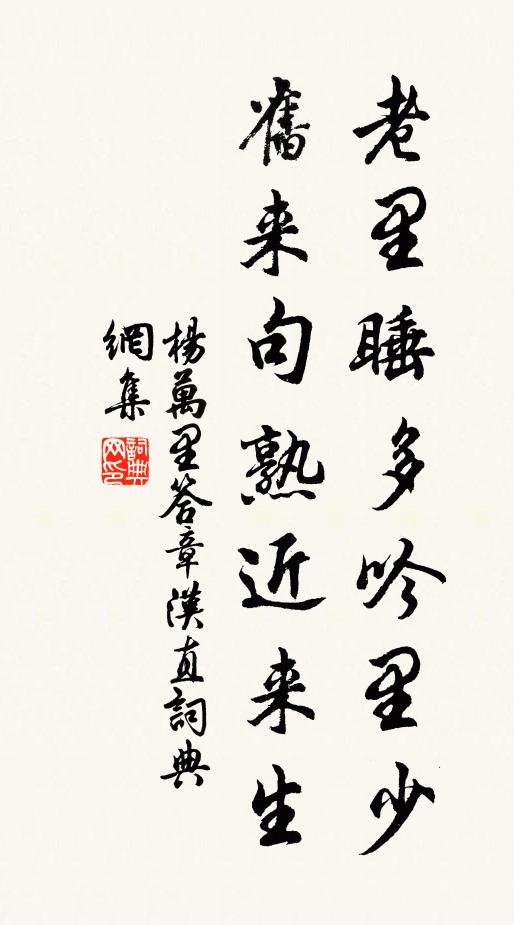 老里睡多吟里少
舊来句熟近来生
楊萬里答章漢直詞典
網集
詞典
网印